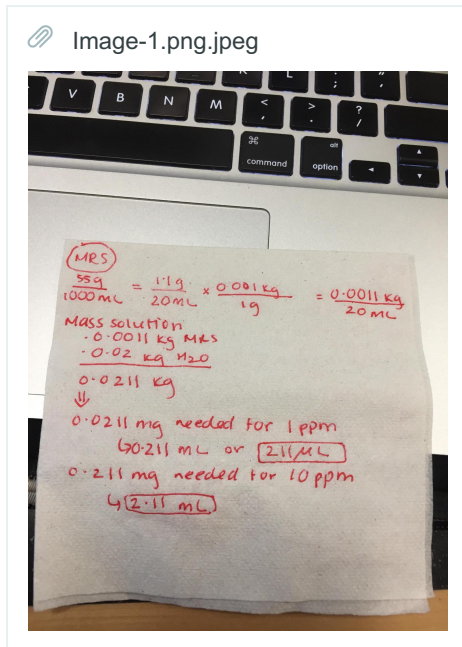 Image-1.png.jpeg
K
L
:
;
"
'
V
B
N
M
<
,
>
.
?
/
⌘
command
alt
option
◄
▲
▼
MRS
55g / 1000 mL = 1.1g / 20mL × 0.001 kg / 1g = 0.0011 kg / 20 mL
Mass solution
· 0.0011 kg MRS
· 0.02 kg H2O
0.0211 kg
⇓
0.0211 mg needed for 1 ppm
↳ 0.211 mL or 211 µL
0.211 mg needed for 10 ppm
↳ 2.11 mL